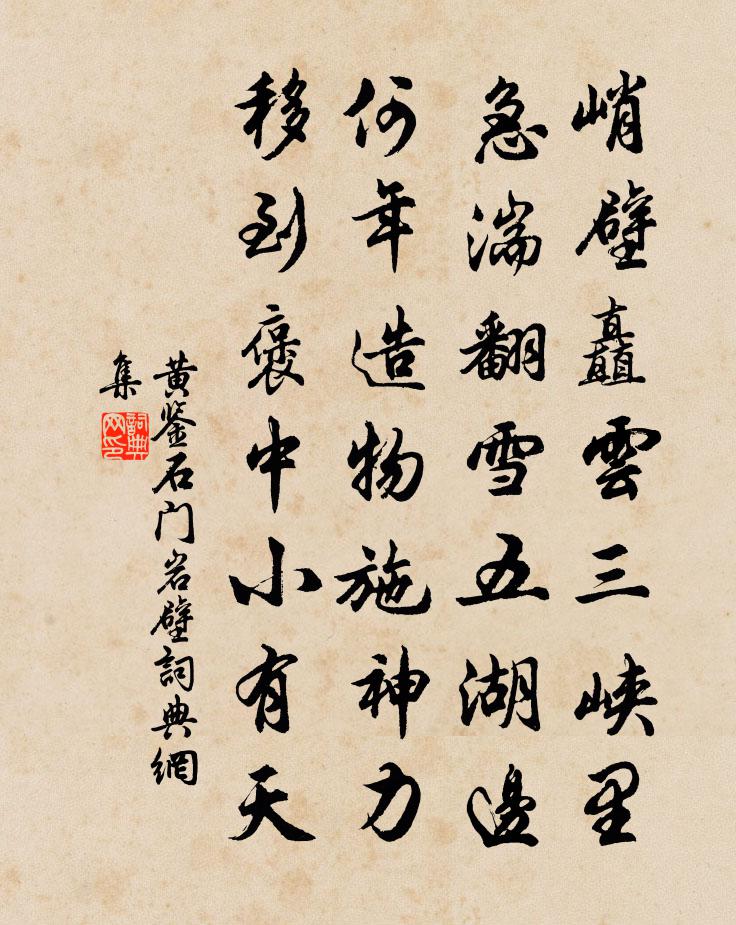 峭壁矗雲三峽里
急湍翻雪五湖邊
何年造物施神力
移到褒中小有天
黄鉴石门岩壁詞典網
集
詞典
网印